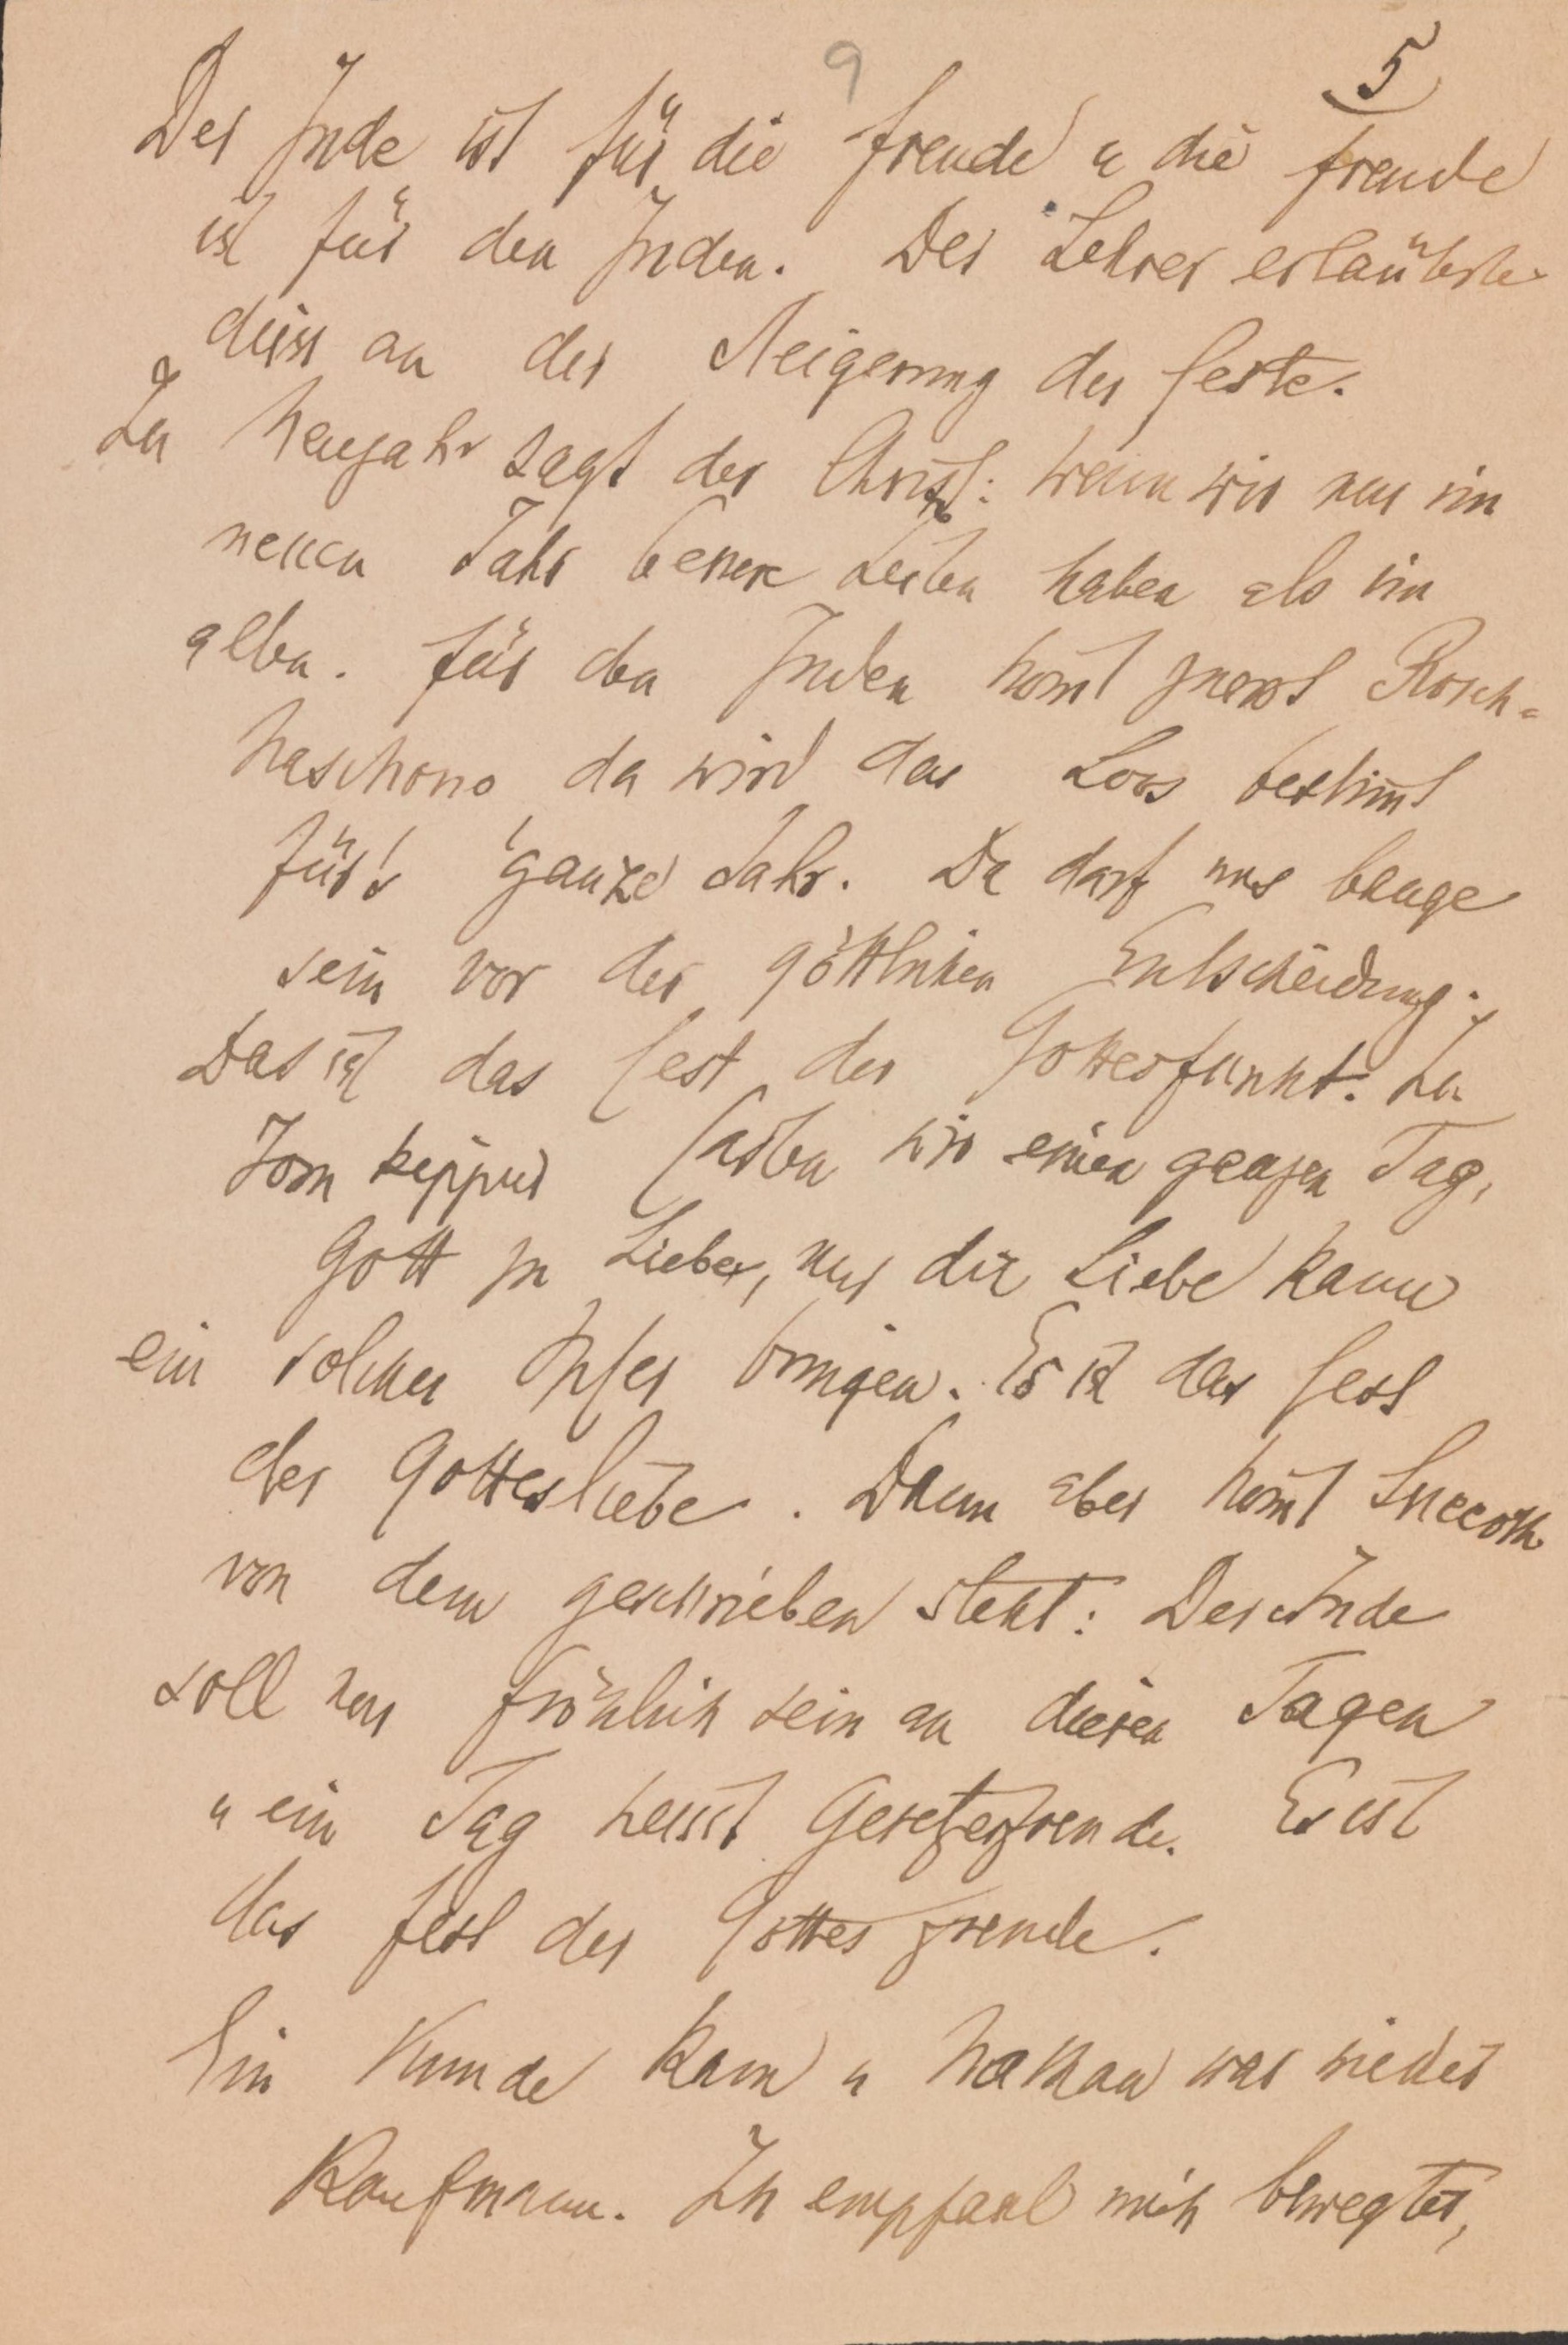 9 5
Der Jude ist für die Freude u die Freude
ist für den Juden. Der Lehrer erläuterte
diess an der Steigerung der Feste.
Zu Neujahr sagt der Christ: wenn wir nur im
neuen Jahr bessere Zeiten haben als im
alten. Für den Juden kom̄t zuerst Rosch-
haschono da wird das Loos bestim̄t
für's ganze Jahr. Da darf uns bange
sein vor der göttlichen Entscheidung.
Das ist das Fest der Gottesfurcht. Zu
Jom kippur fasten wir einen ganzen Tag,
Gott zu Liebe, nur die Liebe kann
ein solches Opfer bringen. Es ist das Fest
der Gottesliebe. Dann aber kom̄t Succoth
von dem geschrieben steht: Der Jude
soll nur fröhlich sein an diesen Tagen
u ein Tag heisst Gesetzesfreude. Es ist
das Fest der Gottesfreude.
Ein Kunde kam u Nathan war wieder
Kaufmann. Ich empfahl mich bewegter,